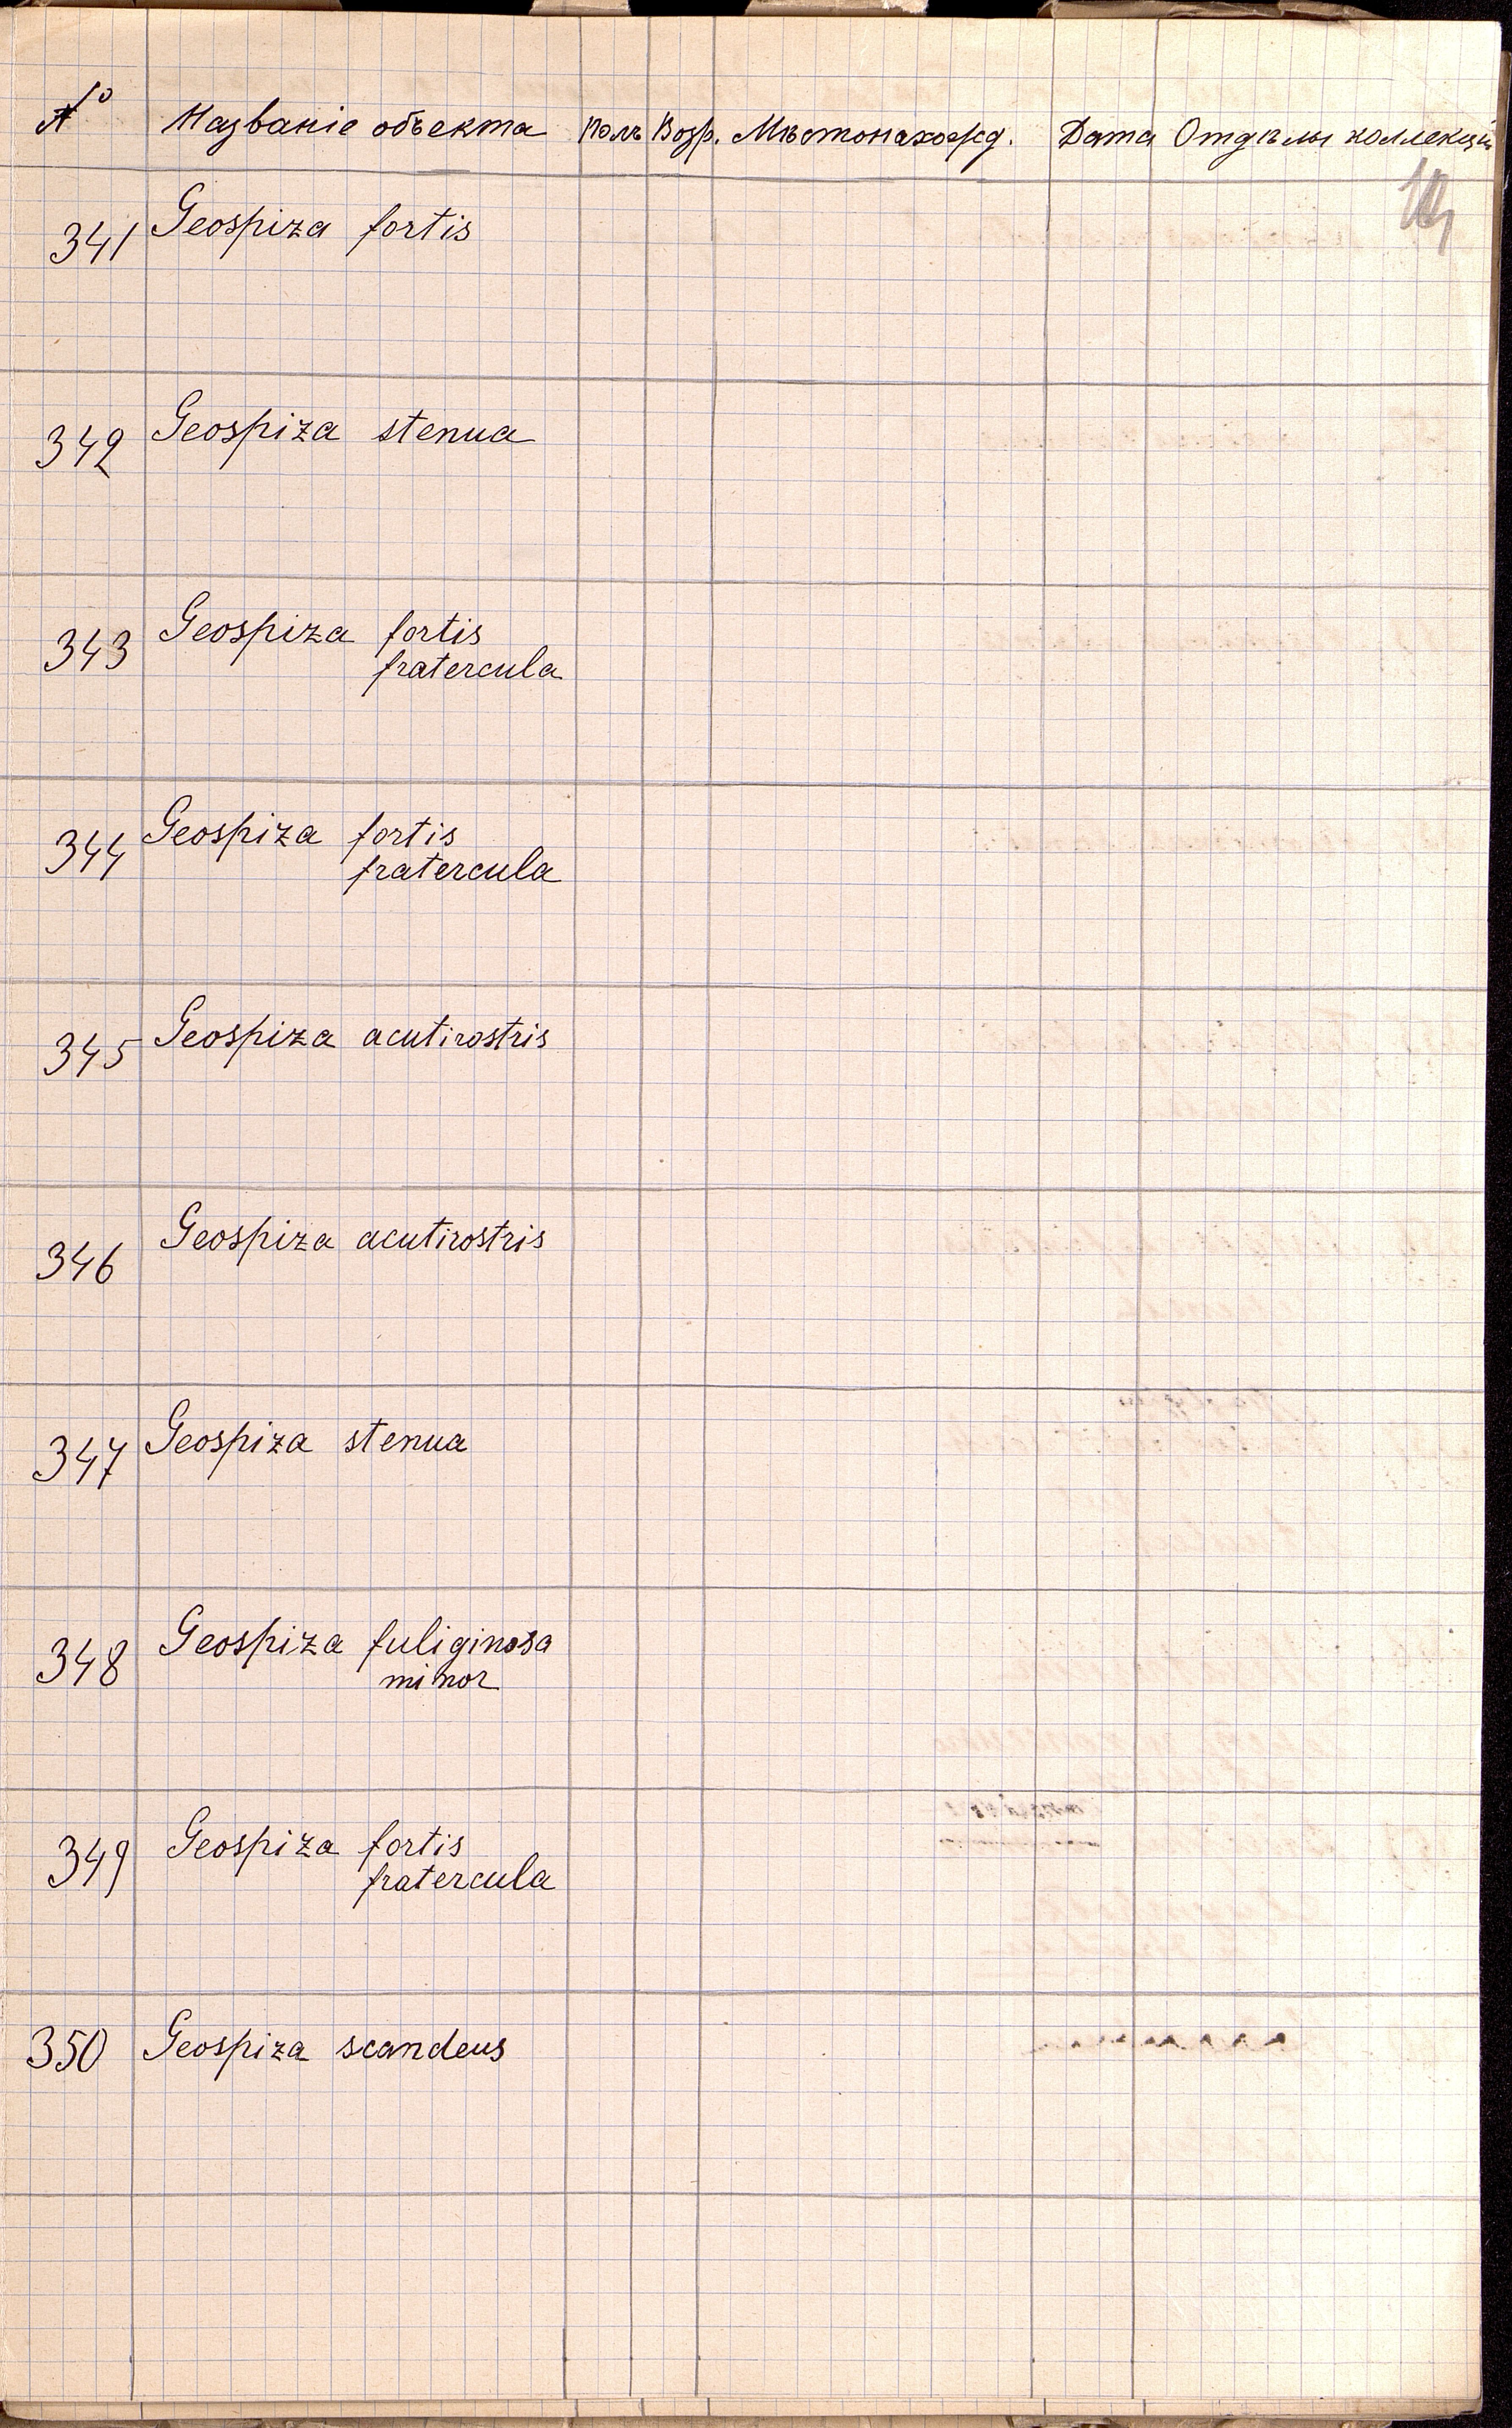 № Названіе объекта Полъ Возр. Мѣстонахожд. Дата Отдѣлы коллекціи
341 Geospiza fortis
342 Geospiza stenua
343 Geospiza fortis
fratercula
344 Geospiza fortis
fratercula
345 Geospiza acutirostris
346 Geospiza acutirostris
347 Geospiza stenua
348 Geospiza fuliginosa
minor
349 Geospiza fortis
fratercula
350 Geospiza scandeus